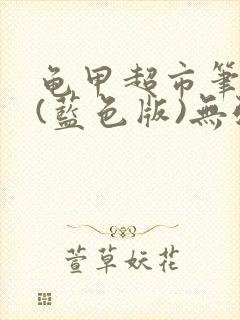 龟甲超市筆
(藍色版)無
萱草妖花